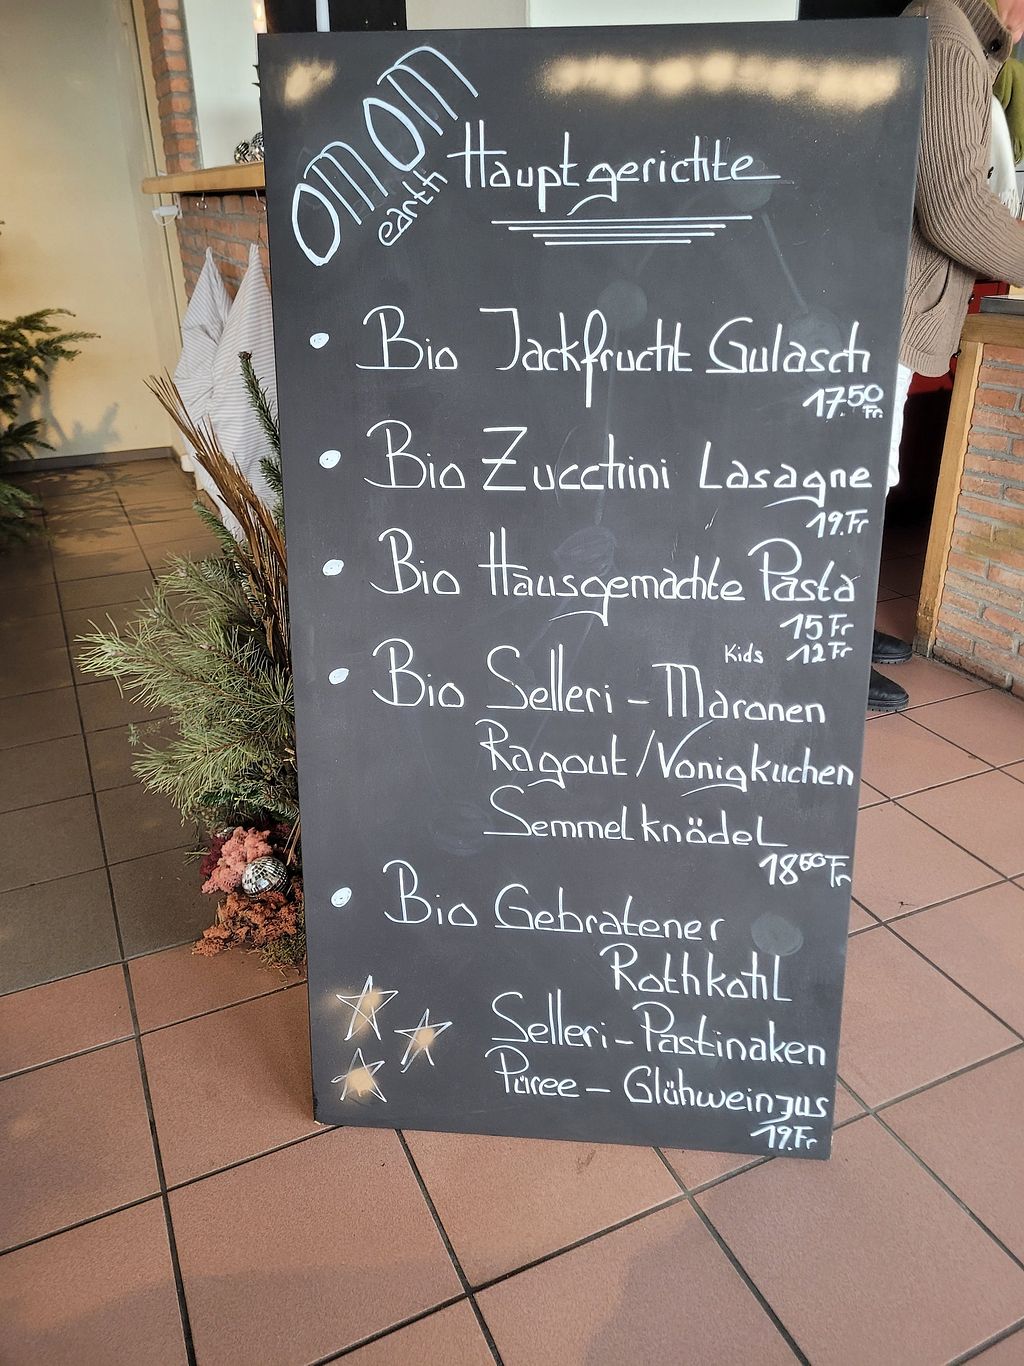 OMOM
earth
Hauptgerichte
Bio Jackfrucht Gulasch
17.50 Fr.
Bio Zucchini Lasagne
19.Fr
Bio Hausgemachte Pasta
15 Fr
Kids 12 Fr
Bio Selleri - Maronen
Ragout / Vonigkuchen
Semmelknödel
18 50 Fr
Bio Gebratener
Rothkohl
Selleri - Pastinaken
Püree - Glühweinjus
19.Fr